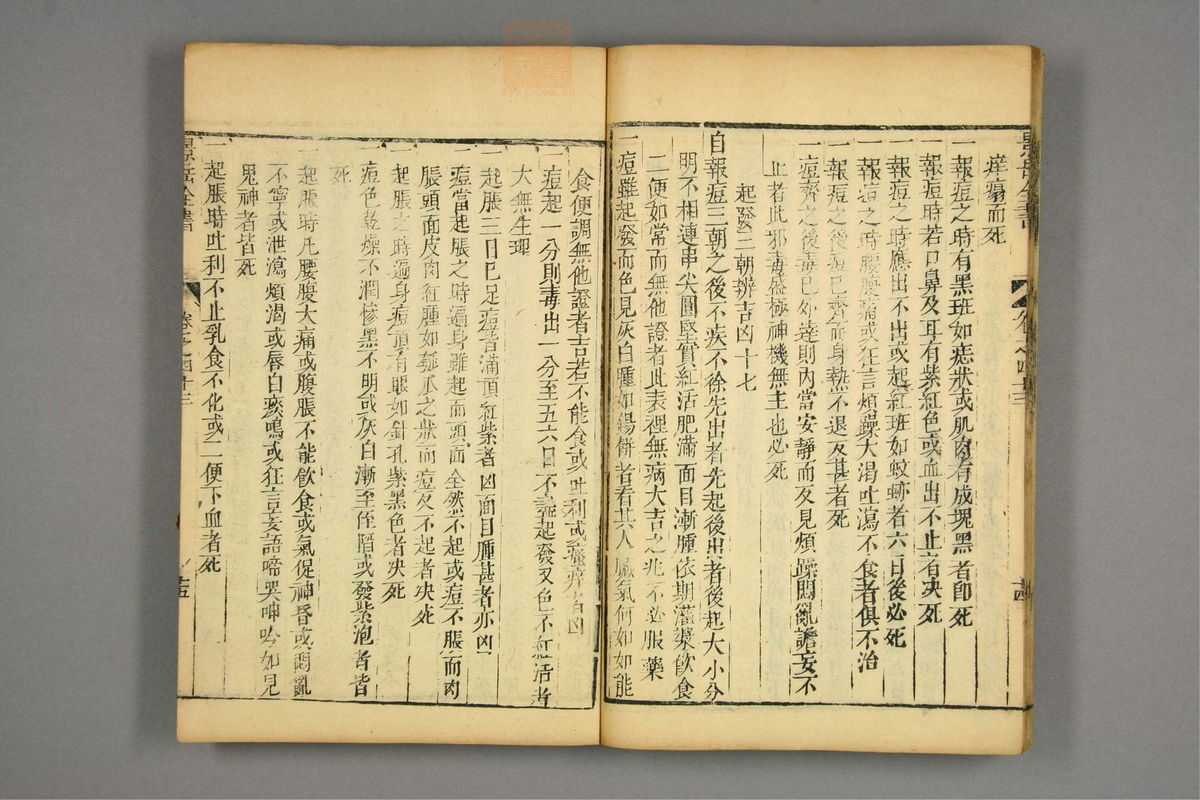 景岳全書
卷之四十三
痒瘍而死
一報痘之時有黑班如痣狀或肌肉有成塊黑者卽死
報痘時若口鼻及耳有紫紅色或血出不止者决死
報痘之時應出不出或起紅班如蚊跡者六日後必死
一報痘之時腰腹痛或狂言煩躁大渴吐瀉不食者俱不治
一報痘之後痘已齊而身熱不退反甚者死
一痘齊之後毒已外達則內當安靜而反見煩躁悶亂譫妄不
止者此邪毒盛極神機無主也必死
起發三朝辨吉凶十七
自報痘三朝之後不疾不徐先出者先起後出者後起大小分
明不相連串尖圓堅實紅活肥滿面目漸腫依期灌漿飲食
二便如常而無他證者此表裡無病大吉之兆不必服藥
一痘雖起發而色見灰白腫如湯餅者看其人臟氣何如如能
食便調無他證者吉若不能食或吐利或癢痒者凶
痘起一分則毒出一分至五六日不盡起發又色不紅活者
大無生理
一起脹三日已足痘皆滿頂紅紫者凶面目腫甚者亦凶
痘當起脹之時遍身雖起而頭面全然不起或痘不脹而肉
脹頭面皮肉紅腫如瓠瓜之狀而痘反不起者决死
起脹之時遍身痘頂有眼如針孔紫黑色者决死
痘色乾燥不潤慘黑不明或灰白漸至徃陷或發紫泡者皆
死
一起脹時凡腰腹大痛或腹脹不能飲食或氣促神昏或悶亂
不寧或泄瀉煩渴或唇白痰鳴或狂言妄語啼哭呻吟如見
鬼神者皆死
一起脹時吐利不止乳食不化或二便下血者死
景岳全書
卷之四十三